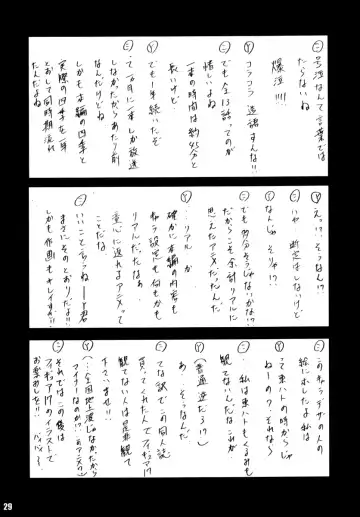 ㊁ 号泣なんて言葉では
たらないね
爆泣!!!!
㋳ コラコラ 造語すんな!!
㊁ でも全13話ってのが
惜しいよね
一本の時間は約45分と
長いけど
㋳ でも一年続いたぞ
㊁ って一ヵ月に一本しか放送
しなかったからあたり前
なんだけどね
しかも本編の四季と
実際の四季を一年
とおして同時期流れ
たんだよね
㋳ えっ!? そうなん!?
㊁ いや 断定はしないけど
㋳ なんじゃ そりゃ!?
㊁ でも多分そうじゃないかな!?
だからこそ余計リアルに
思えたアニメだったんだ
㋳ …リアル か
確かに本編の内容も
キャラ設定も何もかも
リアルだんたな
童心に返れるアニメって
ことだな
㊁ いいこと言ってね Y君
まさにそのとおりだよ!!
しかも作画もキレイすぎ!!
㊁ このキャラデザの人の
絵にホレたしよ 私は
㋳ って東ハトの時からじゃ
ねーの? それなら
㊁ 私は東ハトもくるみも
観てないんだなこれが
㋳ (普通逆だろ!?)
あ…そうなんだ
㊁ てな訳で この同人誌
買ってくれた人でフィギュア17
観てない人は是非観て
下ていませ!!
㋳ (…全国地上波じゃなかったから
マイナーなのか!? このアニメ)
㊁ それではこの後は
フィギュア17のイラストで
お楽み下を!!
バイバイ〜
29